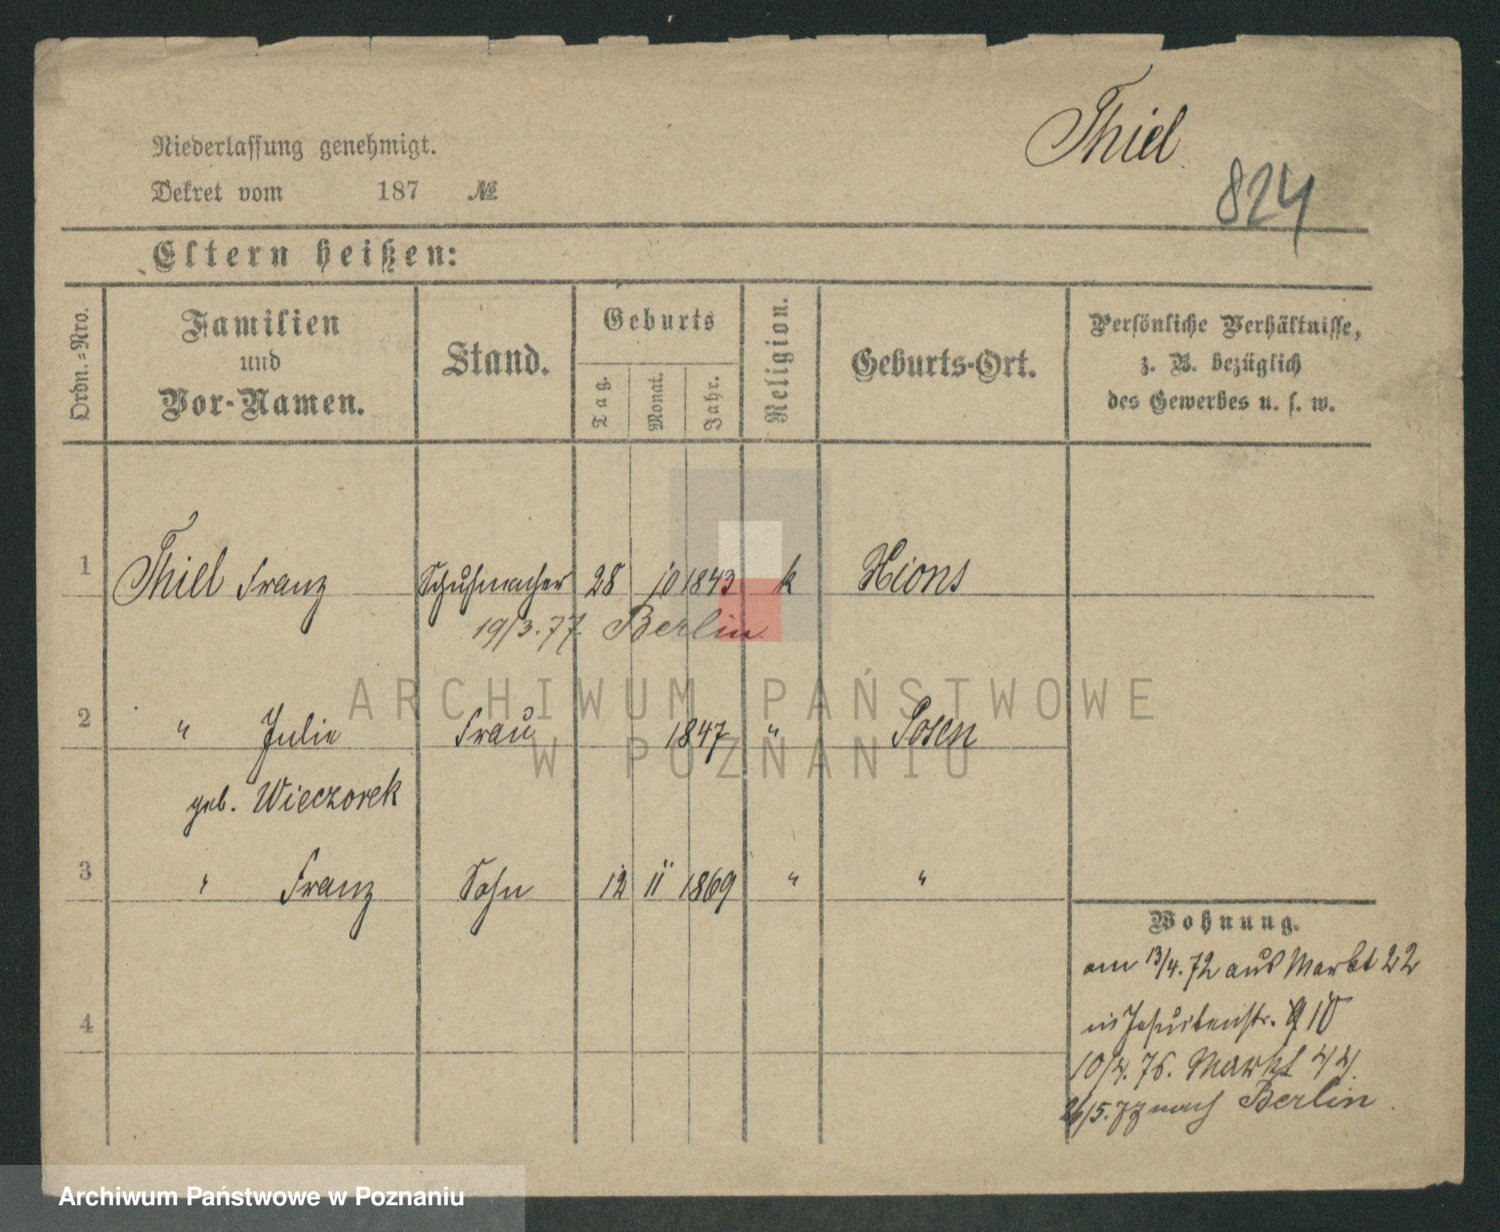 Thiel
824
Niederlassung genehmigt.
Dekret vom 187 №
Eltern heißen:
Ordn.-Nro.
Familien und Vor-Namen.
Stand.
Geburts
Tag.
Monat.
Jahr.
Religion.
Geburts-Ort.
Persönliche Verhältnisse,
z. B. bezüglich
des Gewerbes u. s. w.
1 Thiel Franz Schuhmacher 28 10 1843 k Xions
19/3.77. Berlin
2 " Julie Frau 1847 " Posen
geb. Wieczorek
3 " Franz Sohn 12 11 1869 " "
4
Wohnung.
am 13/4.72 aus Markt 22
in Jesuitenstr. 10
Markt 44.
nach Berlin
ARCHIWUM PAŃSTWOWE
W POZNANIU
Archiwum Państwowe w Poznaniu